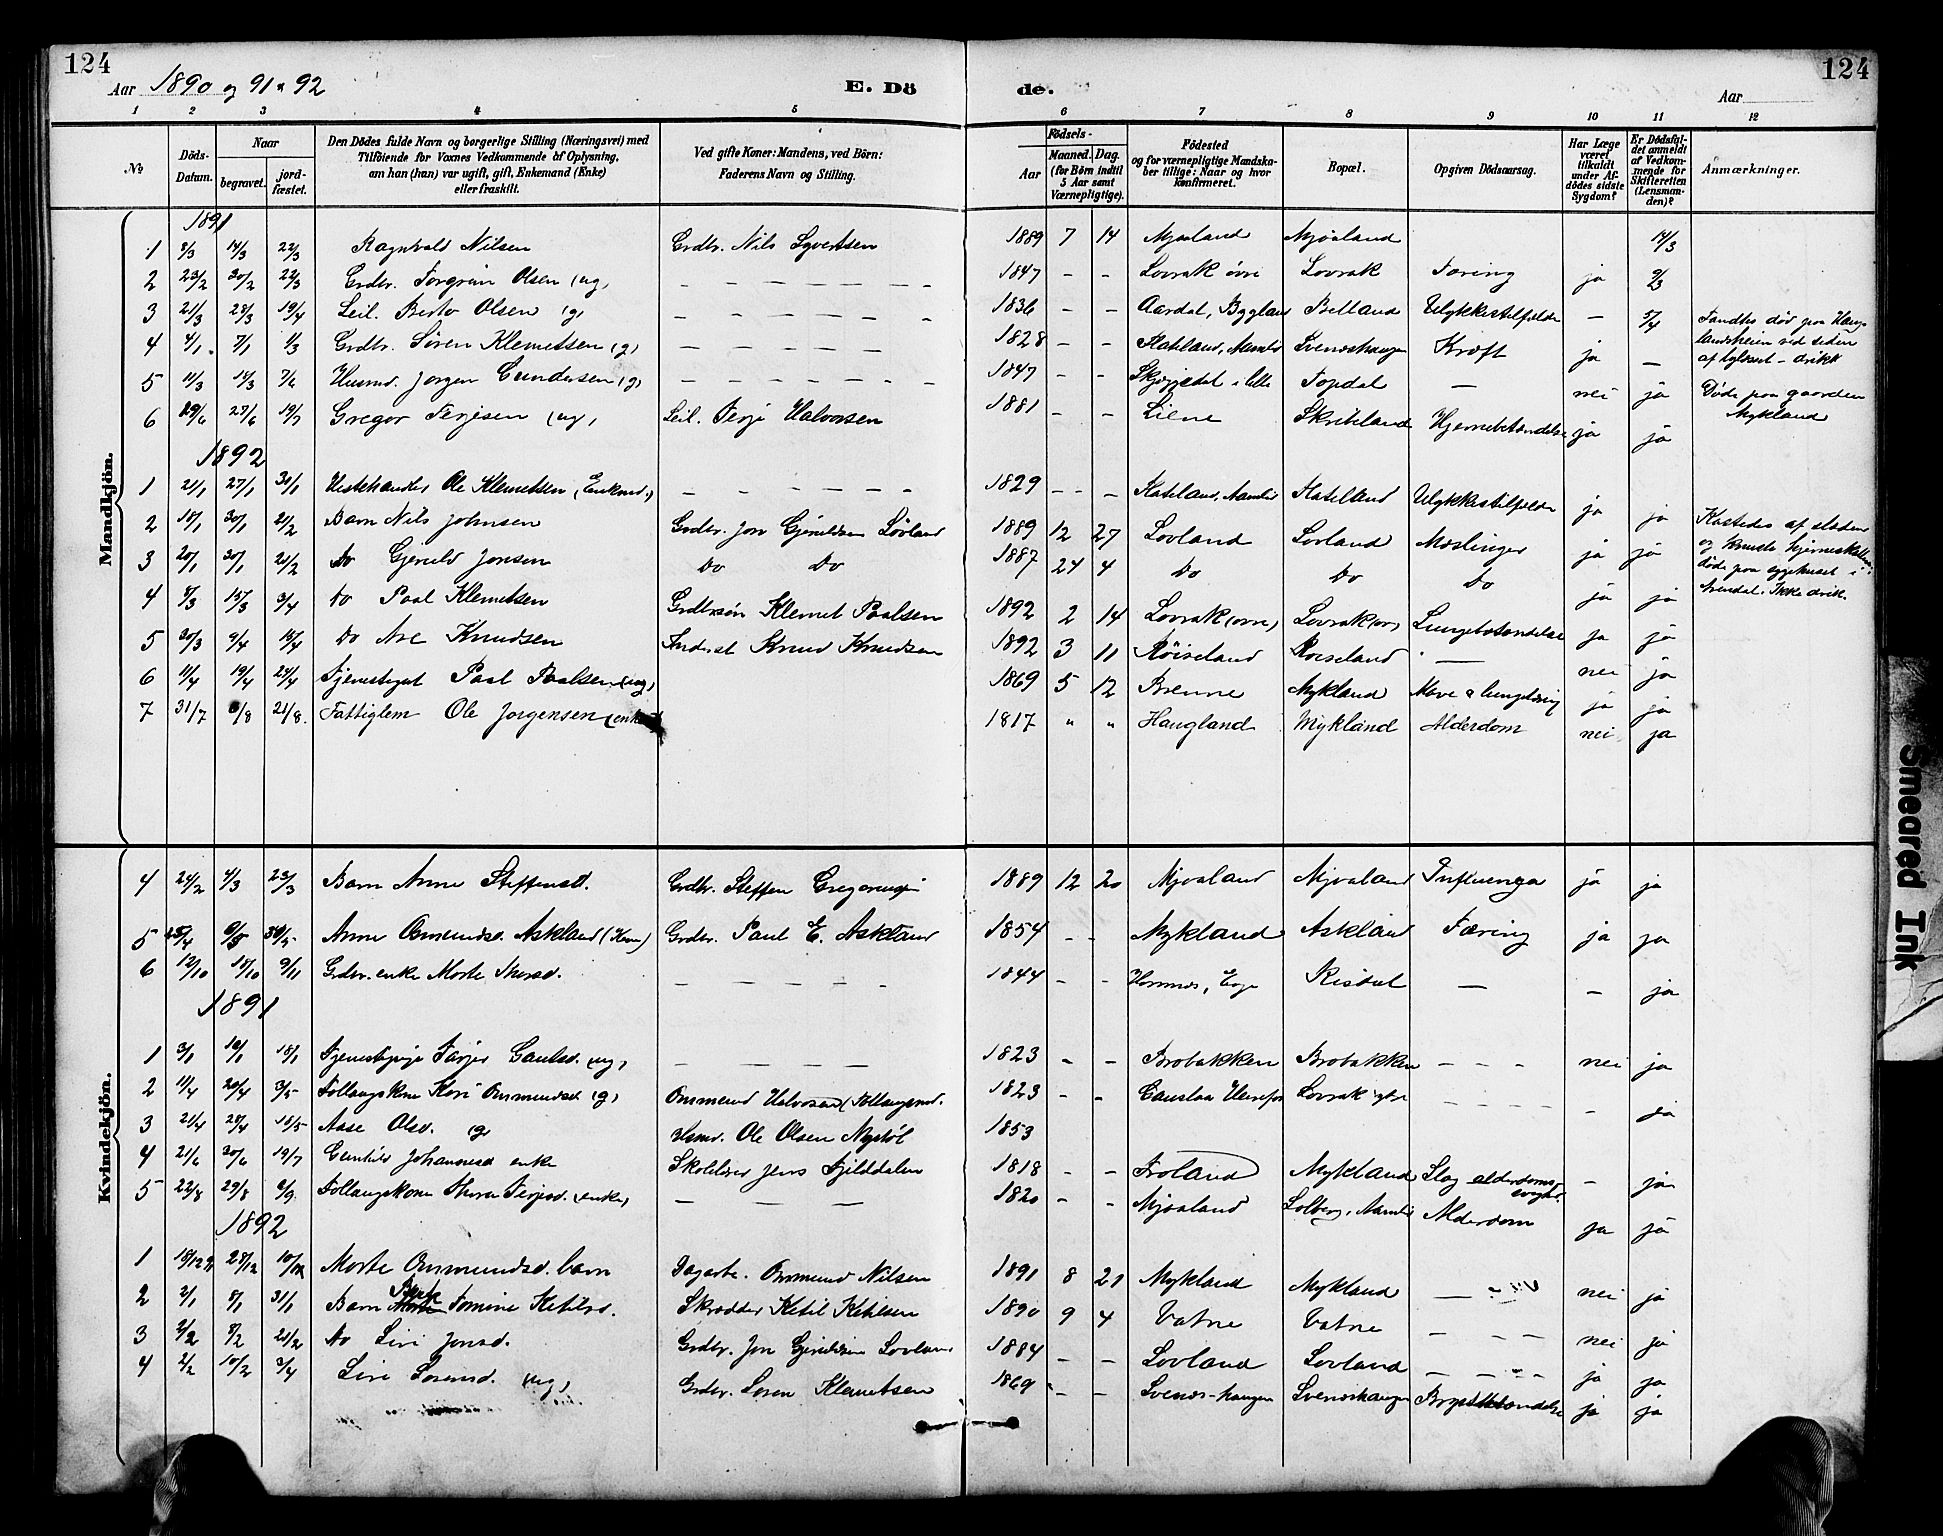 124
124
Aar 1890 og 91 & 92
E. Dö
de.
Aar
1 2 3 4 5 6 7 8 9 10 11 12
No
Döds-Datum.
Naar
begravet.
jordfæstet.
Den Dödes fulde Navn og borgerlige Stilling (Næringsvei) med
Tilföiende for Voxnes Vedkommende af Oplysning,
om han (hun) var ugift, gift, Enkemand (Enke)
eller fraskilt.
Ved gifte Koner: Mandens, ved Börn:
Faderens Navn og Stilling.
Födsels-
Aar
Maaned. Dag.
(for Börn indtil
5 Aar samt
Værnepligtige).
Födested
og for værnepligtige Mandska-
ber tillige: Naar og hvor
konfirmeret.
Bopæl.
Opgiven Dödsaarsag.
Har Læge
været
tilkaldt
under Af-
dödes sidste
Sygdom?
Er Dödsfal-
det anmeldt
af Vedkom-
mende for
Skifteretten
(Lensman-
den)?
Anmærkninger.
Mandkjön.
1891
1 8/3 14/3 22/3 Ragnvald Nilsen Grdbr. Nils Syvertsen 1889 7 14 Mjaaland Mjøaland 14/3
2 23/2 30/2 22/3 Grdbr. Torgrim Olsen (ug) — — — 1847 - - Lovrak øvre Lovrak Tæring ja 2/3
3 21/3 28/3 19/4 Leil. Berto Olsen (g) — — — 1836 - - Aardal, Bygland Belland Ulykkestilfælde — 5/4 Fandtes død paa Haug-
4 4/1 7/1 1/3 Grdbr. Søren Klemetsen (g) — — — 1828 - - Kateland, Aamli Svenæshaugen Kræft ja — landsheien ved siden
af - drikk
5 11/3 14/3 7/6 Husmd. Jørgen Gundersen (g) — — — 1847 - - Topdal — nei ja Døde paa gaarden
Mykland
6 19/6 27/6 19/7 Gregor Terjesen (ug) Leil. Terje Halvorsen 1881 - - Liene Skribeland Hjernebetændelse ja ja
1892
1 21/1 27/1 30/1 Hestehandler Ole Klemetsen (Enkmd.) — — — 1829 - - Kateland, Aamli Katelland Ulykkestilfælde ja ja Kastedes af slæden
2 18/1 30/1 21/2 Barn Nils Johnsen Grdbr. Jon Gjeruldsen Lövland 1889 12 27 Lovland Lovland Mæslinger ja ja og knuste hjerneskallen
3 20/1 30/1 21/2 Do Gjeruld Jonsen Do Do 1887 24 4 Do Do Do ja ja døde paa sygehuset i
Arendal. Ikke drik.
4 8/3 15/3 3/4 Do Paal Klemetsen Grdbrsøn Klemet Paalsen 1892 2 14 Lovrak (øvre) Lovrak (øv) Lungebetændelse ja ja
5 30/3 9/4 18/4 Do Are Knudsen Inderst Knud Knudsen 1892 3 11 Röiseland Roiseland — nei ja
6 11/4 19/4 24/4 Tjenestegut Paal Paalsen (ug) 1869 5 12 Brenne Mykland Mave & lungetæring ja ja
7 31/7 6/8 21/8. Fattiglem Ole Jørgensen (enkem) 1817 " " Haugland Mykland Alderdom nei ja
Kvindekjön.
4 24/2 4/3 23/3 Barn Anne Steffensd. Grdbr. Steffen 1889 12 20 Mjøaland Mjøaland Influenza ja ja
5 Anne Ommundsd. Askland (Kone) Grdbr. Paul E. Askland 1854 - - Mykland Askland Tæring ja ja
6 12/10 18/10 9/11 Grdbr. enke Marte Thorsd. — — — 1844 - - Hornnes, Risdal — - ja
1891
1 3/1 10/1 18/1 Tjenestepige Tarjer (ug) — — — 1823 - - Brobakken Brobakken — nei ja
2 11/4 20/4 3/5 Follaugskone Kari Ommundsd (g) Ommund Halvorsen (Follaugsmd. 1823 - - Lovrak — - ja
3 21/4 28/4 18/5 Aase Olsd. (g) Husmd. Ole Olsen Nystöl 1853
4 21/6 30/6 19/7 Gunhild Johannesd enke Skolelærer Jens Fjelddalen 1818 - - Froland Mykland Slag alderdoms-
svaghed - ja
5 22/8 29/8 6/9 Follaugskone Thora Terjesd. (enke) — — — 1820 - - Mjøaland Solberg, Aamli Alderdom ja ja
1892
1 18/12 91 28/12 10/1 Marte Ommundsd. barn Dagarb. Ommund Nilsen 1891 8 21 Mykland Mykland — nei ja
2 2/1 8/1 31/1 Barn Tomine Ketilsd. Skrædder Ketil Ketilsen 1890 9 4 Vatne Vatne — nei ja
3 2/2 8/2 21/2 Do Siri Jonsd. Grdbr. Jon Gjeruldsen Lovland 1884 - - Lovland Lovland — ja ja
4 2/2 10/2 3/4 Siri Sørensd. (ug) Grdbr. Søren Klemetsen 1869 - - Svenæs-haugen Svenæshaugen Brystbetændelse ja ja
Smeared Ink